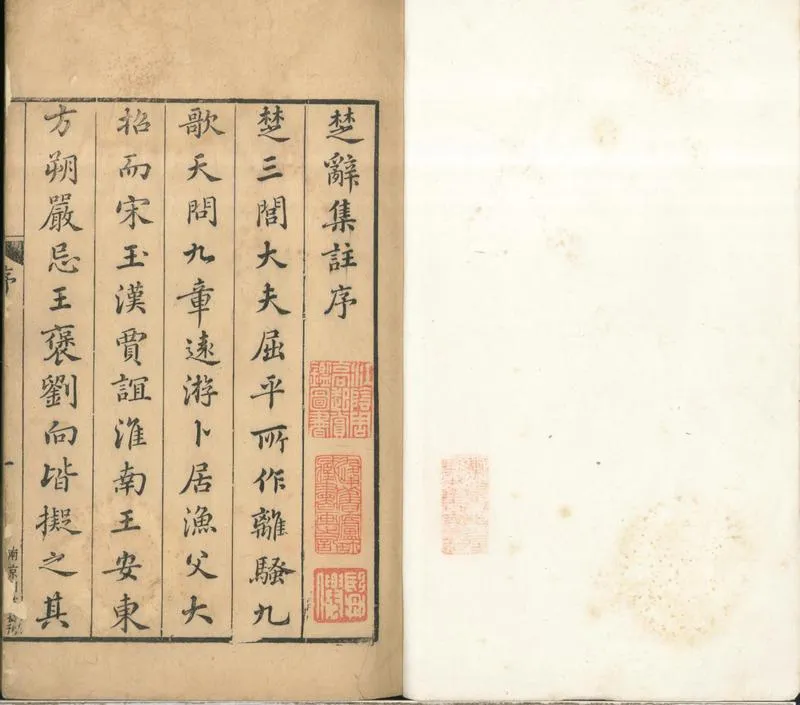 楚辭集註序
楚三閭大夫屈平所作離騷九
歌天問九章遠游卜居漁父大
招而宋玉漢賈誼淮南王安東
方朔嚴忌王褒劉向皆擬之其
序
一